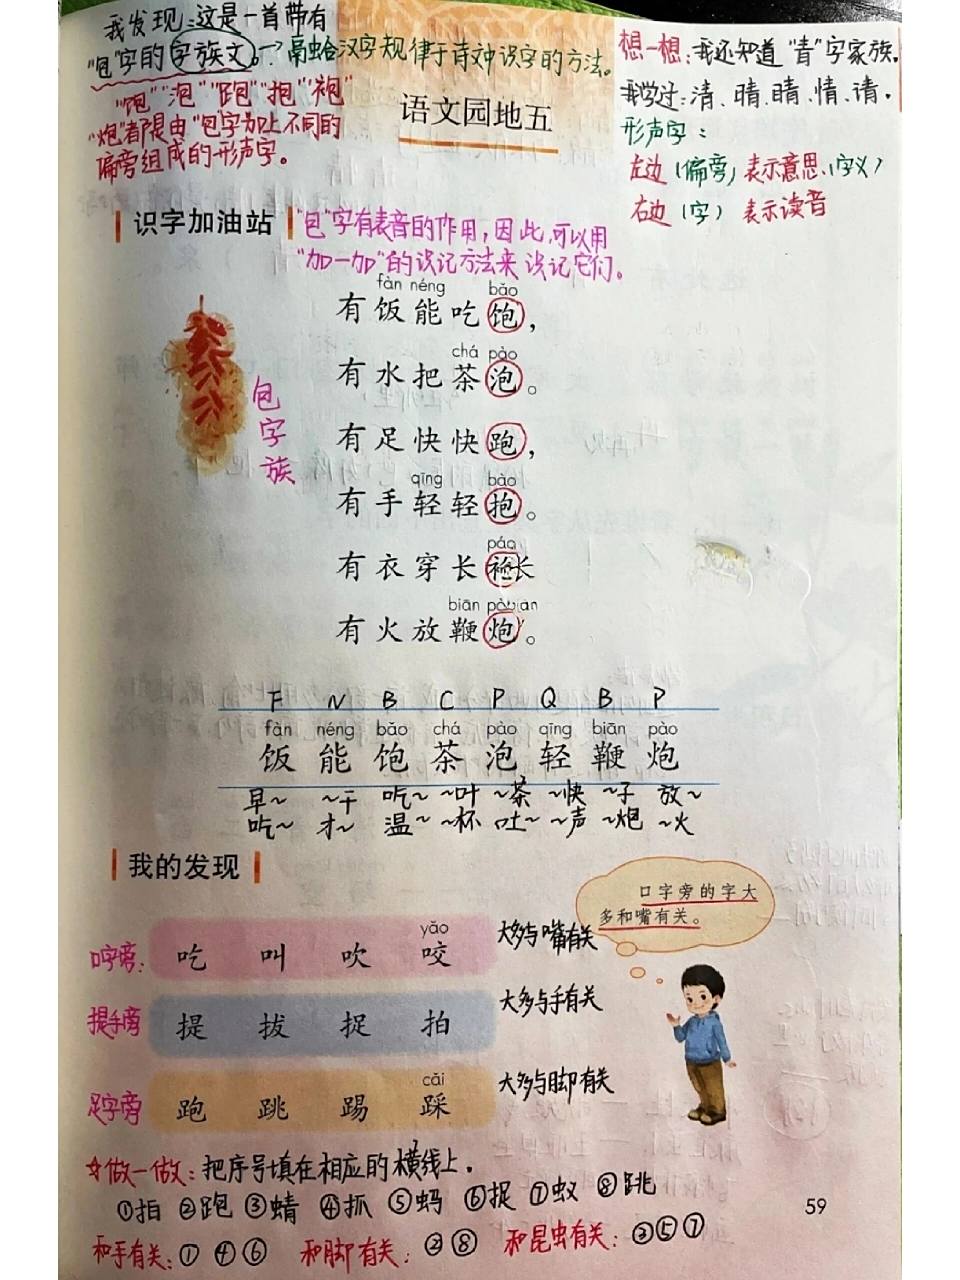 我发现:这是一首带有
"包"字的字族文。→融合汉字规律于诗文中识字的方法。
"饱""泡""跑""抱""袍"
"炮"都是由"包"字加上不同的
偏旁组成的形声字。
想一想:我还知道"青"字家族。
我学过:清、晴、睛、情、请。
形声字:
左边(偏旁)表示意思(字义)
右边(字)表示读音
语文园地五
识字加油站
"包"字有表音的作用,因此,可以用
"加一加"的识记方法来识记它们。
fàn néng bǎo
有饭能吃饱,
chá pào
有水把茶泡。
有足快快跑,
qīng bào
有手轻轻抱。
páo
有衣穿长袍长
biān pào biān
有火放鞭炮。
包字族
F N B C P Q B P
fàn néng bǎo chá pào qīng biān pào
饭 能 饱 茶 泡 轻 鞭 炮
早~ ~干 吃~ ~叶 ~茶 ~快 ~子 放~
吃~ 才~ 温~ ~杯 吐~ ~声 ~炮 ~火
我的发现
口字旁的字大
多和嘴有关。
yǎo
口字旁: 吃 叫 吹 咬 大多与嘴有关
提手旁 提 拔 捉 拍 大多与手有关
cǎi
足字旁 跑 跳 踢 踩 大多与脚有关
☆做一做:把序号填在相应的横线上。
①拍 ②跑 ③蜻 ④抓 ⑤蚂 ⑥捉 ⑦蚁 ⑧跳
59
和手有关:①④⑥ 和脚有关:②⑧ 和昆虫有关:③⑤⑦